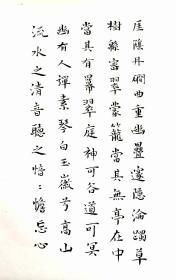 厓陰丹磵西重幽疊邃隱淪躅草
樹緜密翠蒙籠當其無亭在中
當其有冪翠庭神可谷道可冥
幽有人彈素琴白玉徽兮高山
流水之清音聽之愔々憺忘心